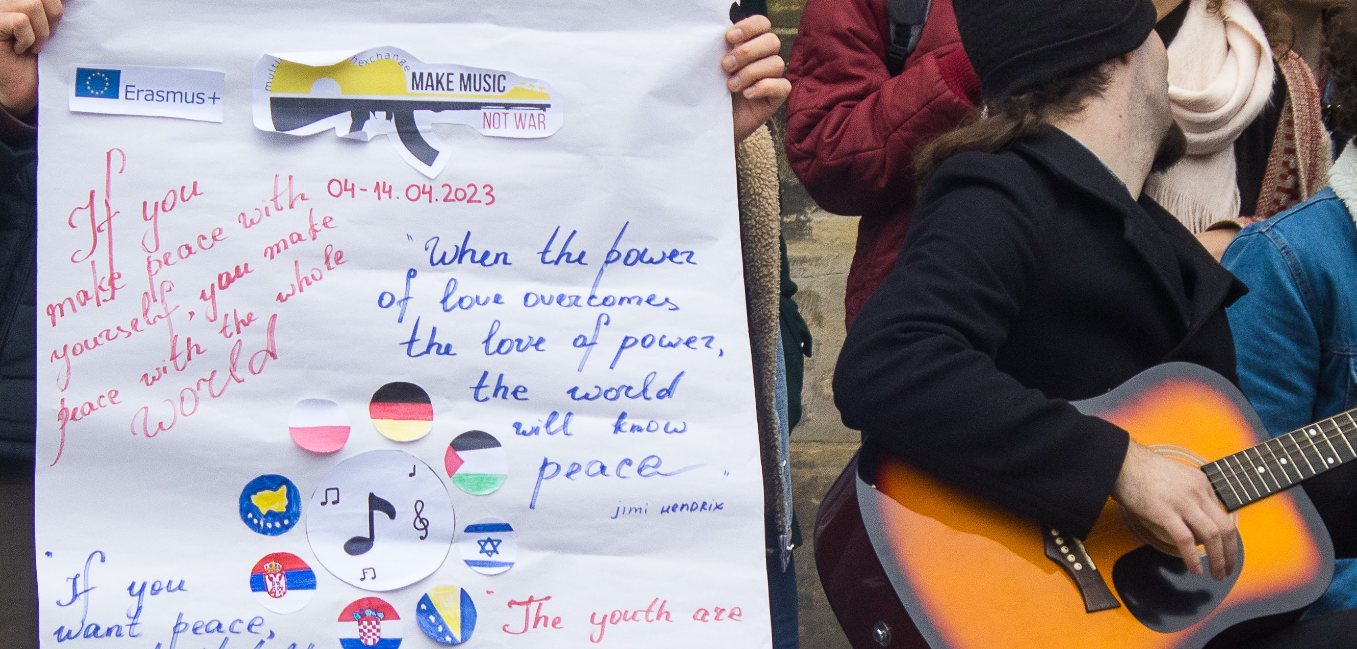 Erasmus+
exchange
MAKE MUSIC
NOT WAR
04-14.04.2023
If you
make peace with
yourself, you make
peace with the whole
world
"When the power
of love overcomes
the love of power,
the world
will know
peace"
Jimi Hendrix
"If you
want peace,
"The youth are